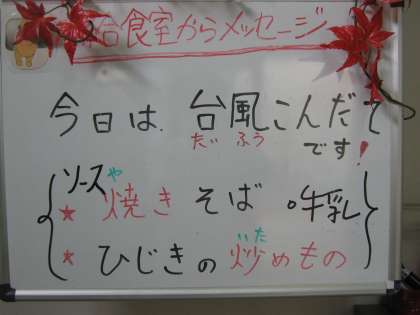 給食室からメッセージ
今日は、台風こんだて
だい ふう
です!
ソース や
★ 焼き そば 。牛乳
いた
★ ひじきの炒めもの